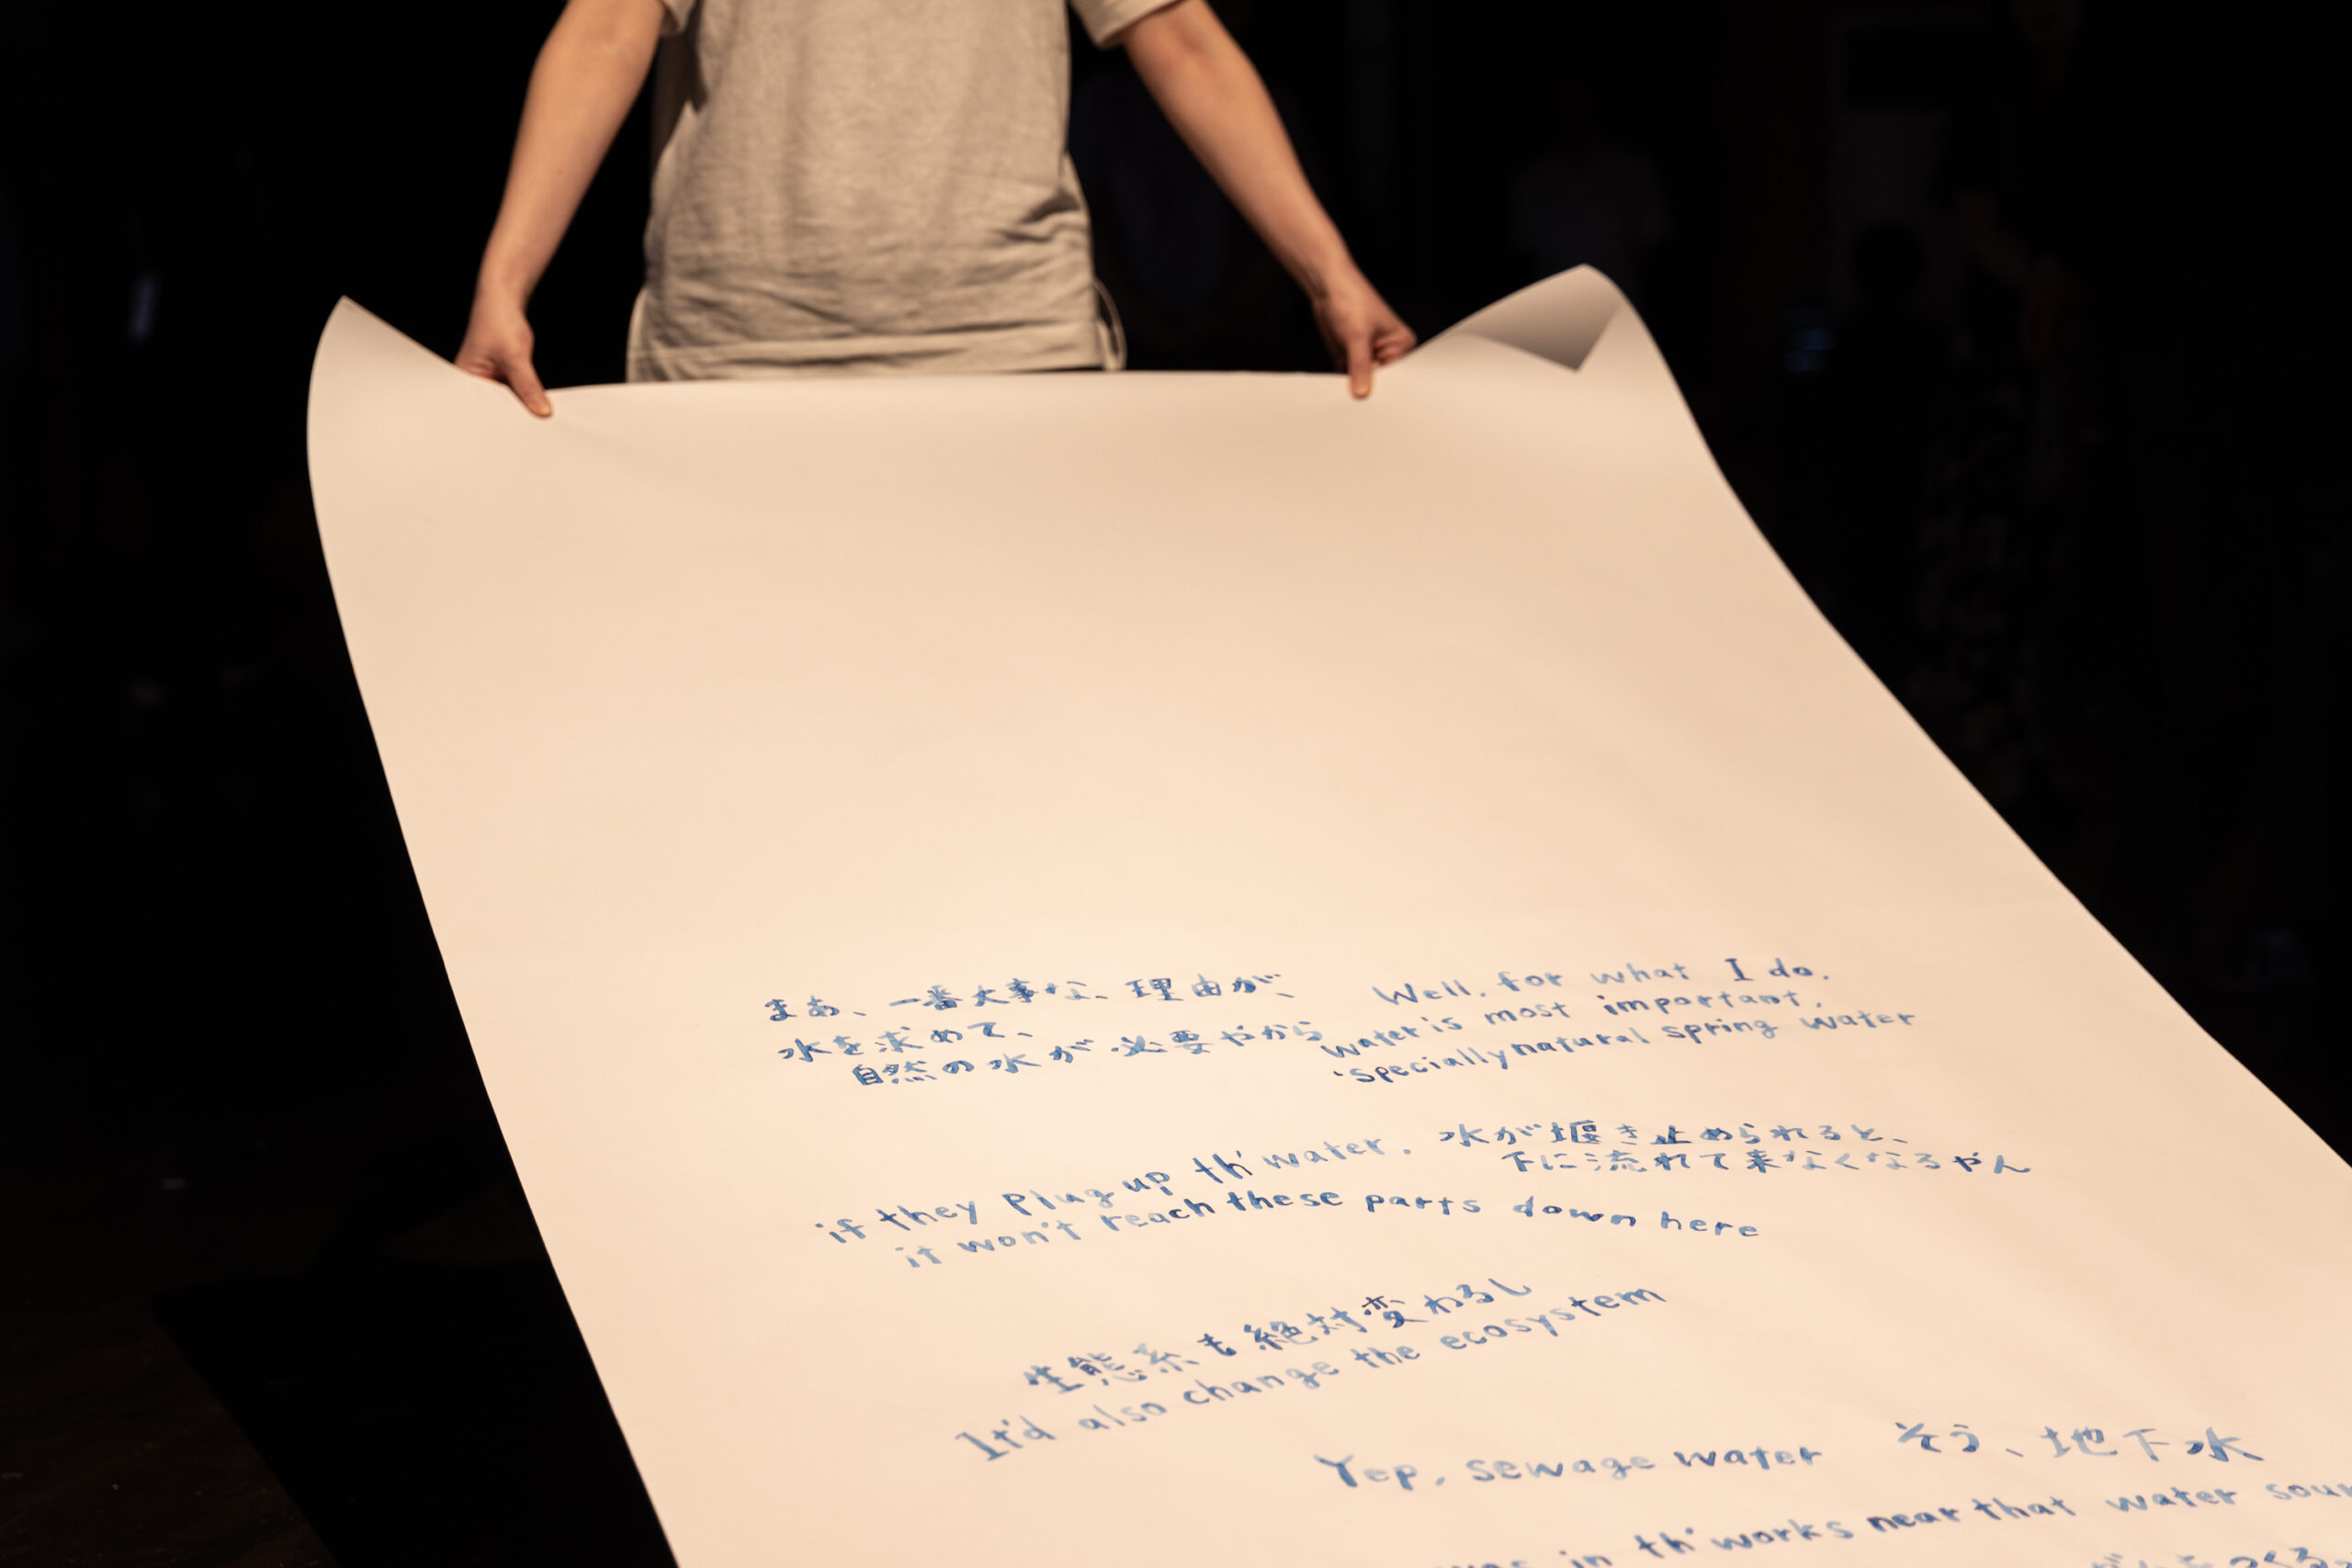 まあ、一番大事な、理由が、
水を求めて、
自然の水が必要やから
Well, for what I do.
water is most important,
'specially natural spring water
if they plug up th' water.
it won't reach these parts down here
水が堰き止められると、
下に流れて来なくなるやん
生態系も絶対変わるし
It'd also change the ecosystem
Yep, sewage water
そう、地下水
in th' works near that water
つくる